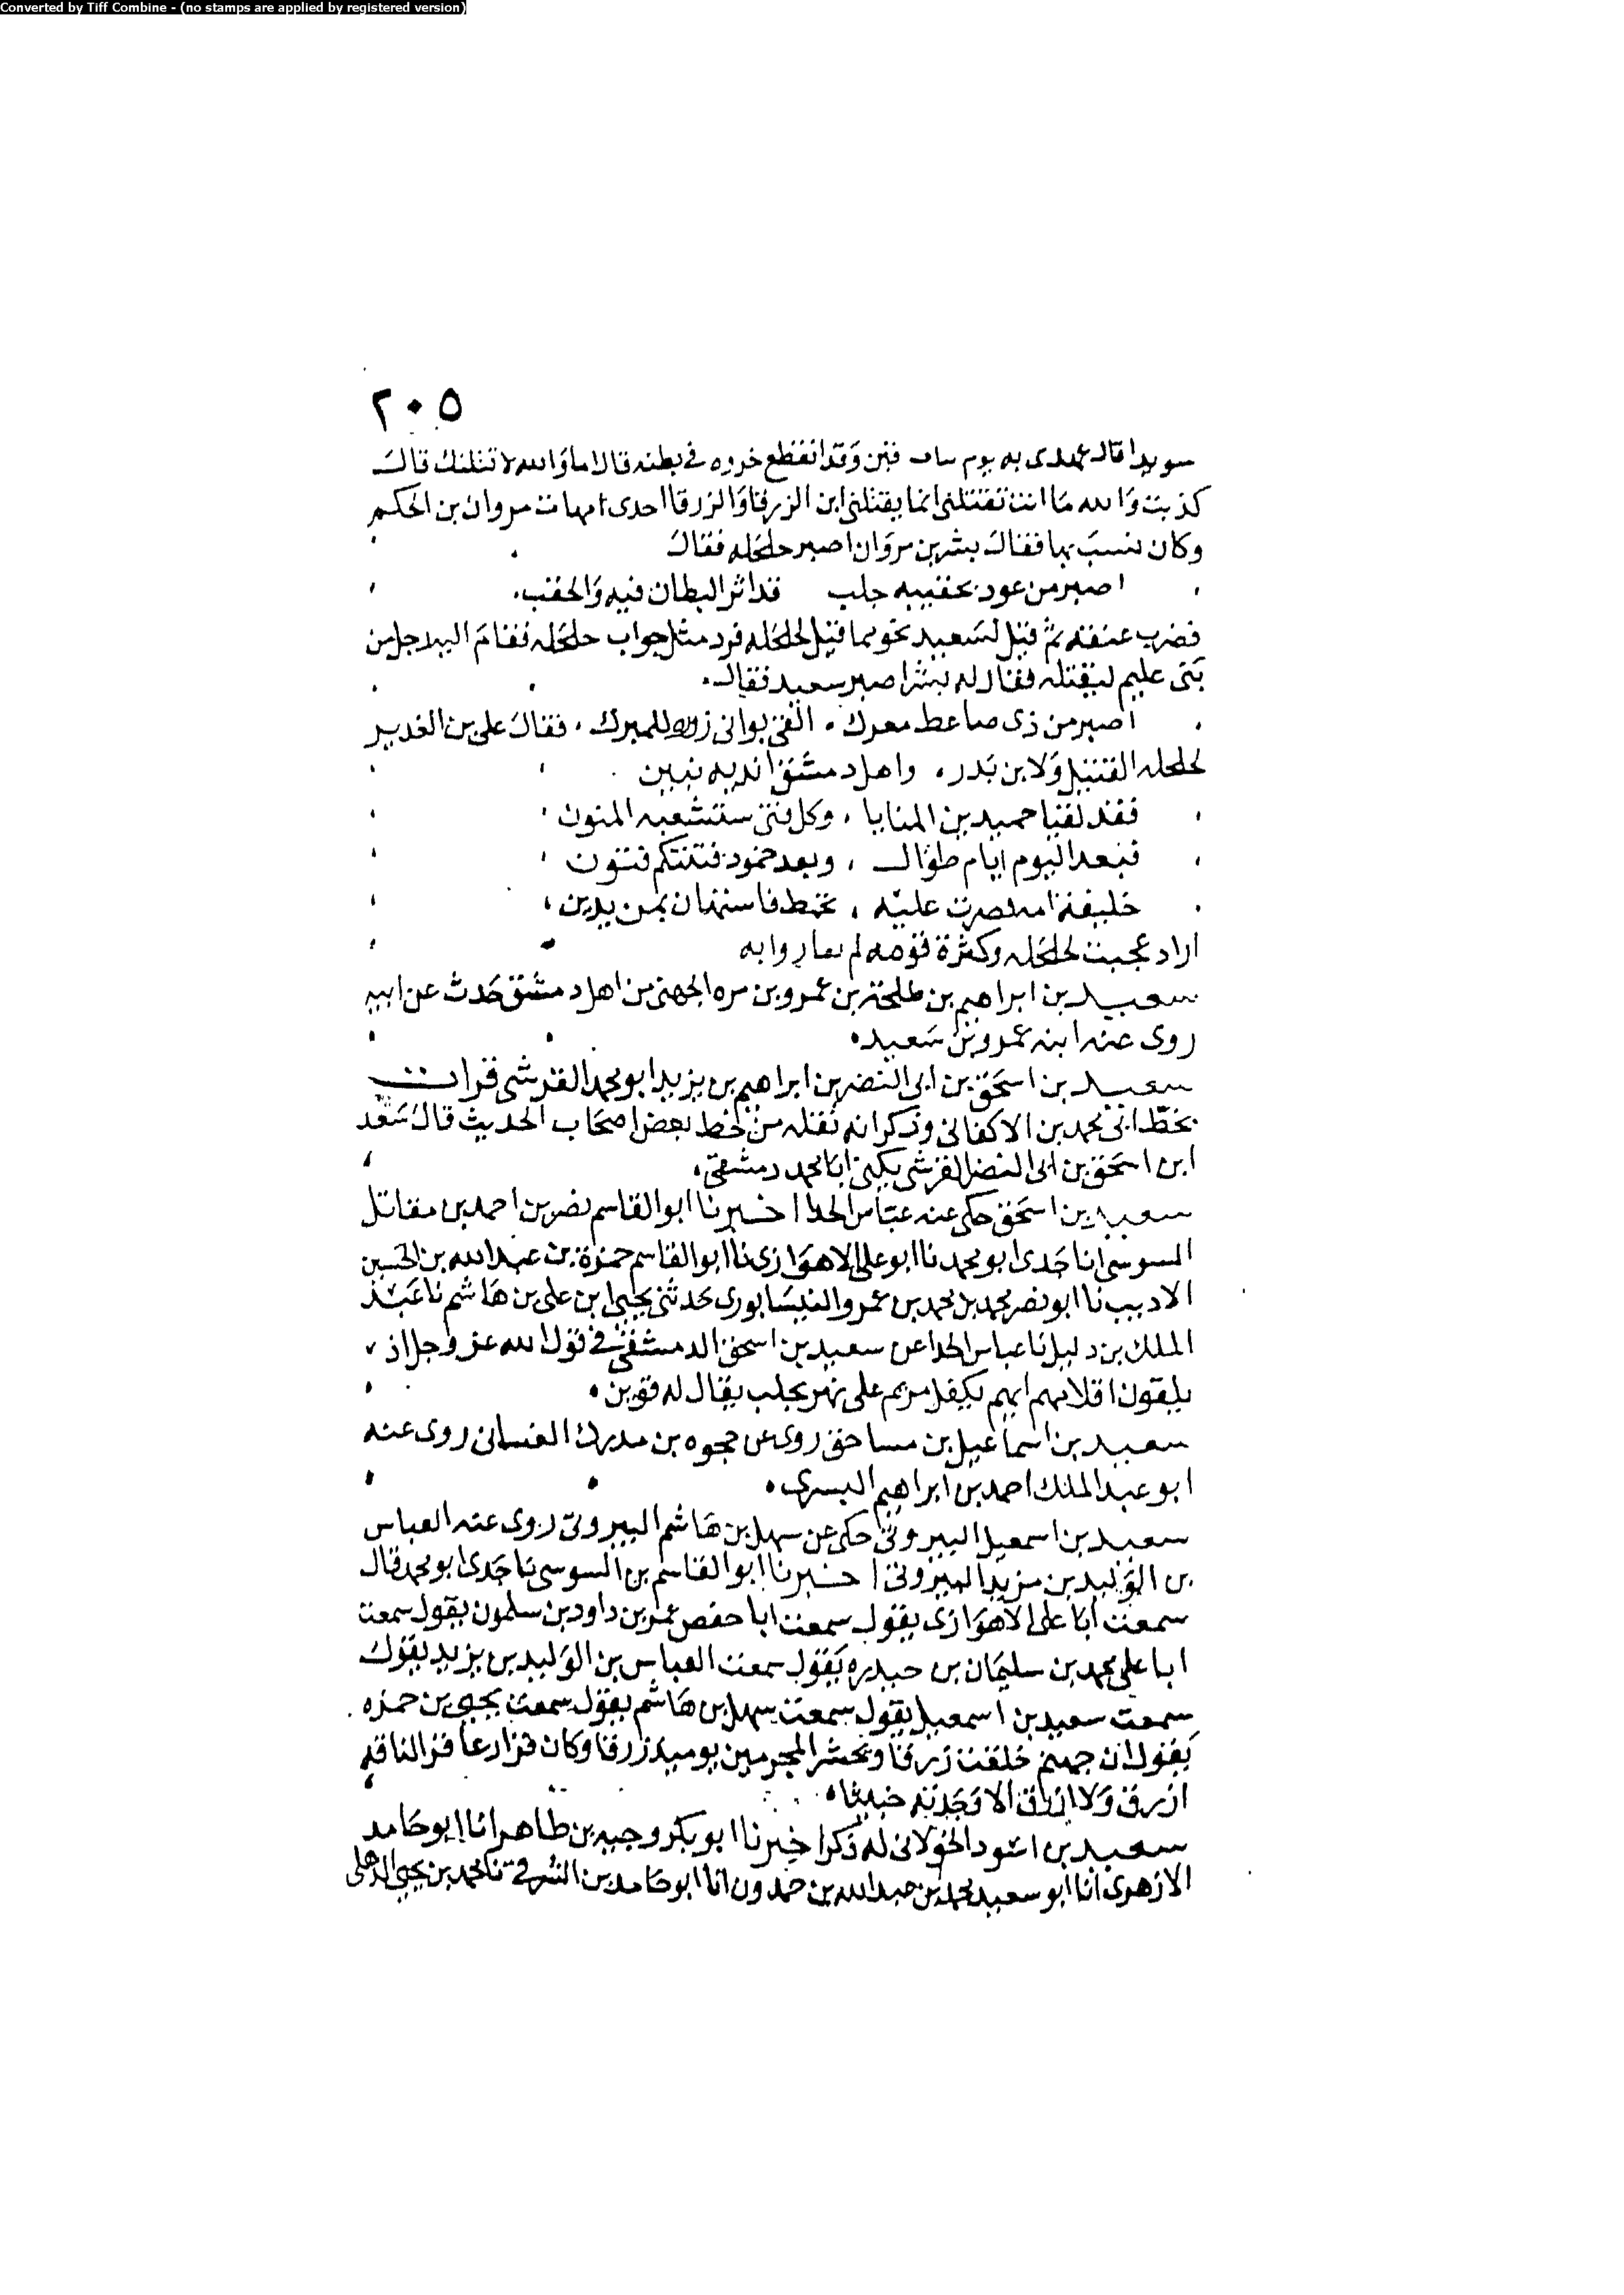 Converted by Tiff Combine - (no stamps are applied by registered version)
٢٠٥
سويدا قال عهدى به يوم بنات قين وقد انقطع خروه فى بطنه قال اما والله لاقتلنك قال
كذبت والله ما انت تقتلنى انما يقتلنى ابن الزرقا والزرقا احدى امهات مروان بن الحكم
وكان ينسب بها فقال بشر بن مروان اصبر حلحله فقال
اصبر من عود بجنبيه جلب قد اثر البطان فيه والحقب
فضرب عنقه ثم قيل لسعيد نحو مما قيل لحلحله فرد مثل جواب حلحله فقام اليه رجل من
بنى عليم ليقتله فقال له بشر اصبر سعيد فقال
اصبر من ذى ضاغط معرك القى بوانى زوره للمبرك فقال على بن الغدير
لحلحله القتيل ولابن بدر واهل دمشق اندية تبين
فقد لقيا حميد بن المنايا وكل فتى ستشعبه المنون
فبعد اليوم ايام طوال وبعد خمود فتنتكم فتون
خليفة امه نصرت عليه تخمط فاستهان بمن يدين
اراد عجبت لحلحله وكثرة قومه لم يعاروا به
سعيد بن ابراهيم بن طلحة بن عمرو بن مره الجهنى من اهل دمشق حدث عن ابيه
روى عنه ابنه عمرو بن سعيد
سعيد بن اسحق بن ابى النضر بن ابراهيم بن يزيد ابو محمد القرشى قرات
بخط ابى محمد بن الاكفانى وذكر انه نقله من خط بعض اصحاب الحديث قال سعيد
ابن اسحق بن ابى النضر القرشى يكنى ابا محمد دمشقى
سعيد بن اسحق حكى عنه عباس الحذا اخبرنا ابو القاسم نصر بن احمد بن مقاتل
السوسى انا جدى ابو محمد نا ابو على الاهوازى نا ابو القاسم حمزة بن عبد الله بن الحسين
الاديب نا ابو نصر محمد بن محمد بن عمرو النيسابورى حدثنى يحيى بن على بن هاشم نا عبد
الملك بن دليل نا عباس الحذا عن سعيد بن اسحق الدمشقى فى قول الله عز وجل اذ
يلقون اقلامهم ايهم يكفل مريم على نهر بحلب يقال له قوين
سعيد بن اسماعيل بن مساحق روى عن محجوه بن مدرك الغسانى روى عنه
ابو عبد الملك احمد بن ابراهيم البسرى
سعيد بن اسمعيل البيروتى حكى عن سهل بن هاشم البيروتى روى عنه العباس
بن الوليد بن مزيد البيروتى اخبرنا ابو القاسم بن السوسى نا جدى ابو محمد قال
سمعت ابا على الاهوازى يقول سمعت ابا حفص عمر بن داود بن سلمون يقول سمعت
ابا على محمد بن سليمان بن حيدره يقول سمعت العباس بن الوليد بن يزيد يقول
سمعت سعيد بن اسمعيل يقول سمعت سهل بن هاشم يقول سمعت يحيى بن حمزه
يقول ان جهنم خلقت زرقا ونحشر المجرمين يوميذ زرقا وكان قزارعا قز الناقه
ازرق ولا ازرق الا وجدته خبيثا
سعيد بن اسود الخولانى له ذكر اخبرنا ابو بكر وجيه بن طاهر انا ابو حامد
الازهرى انا ابو سعيد محمد بن عبد الله بن حمدون انا ابو حامد بن الشرقى نا محمد بن يحيى الذهلى